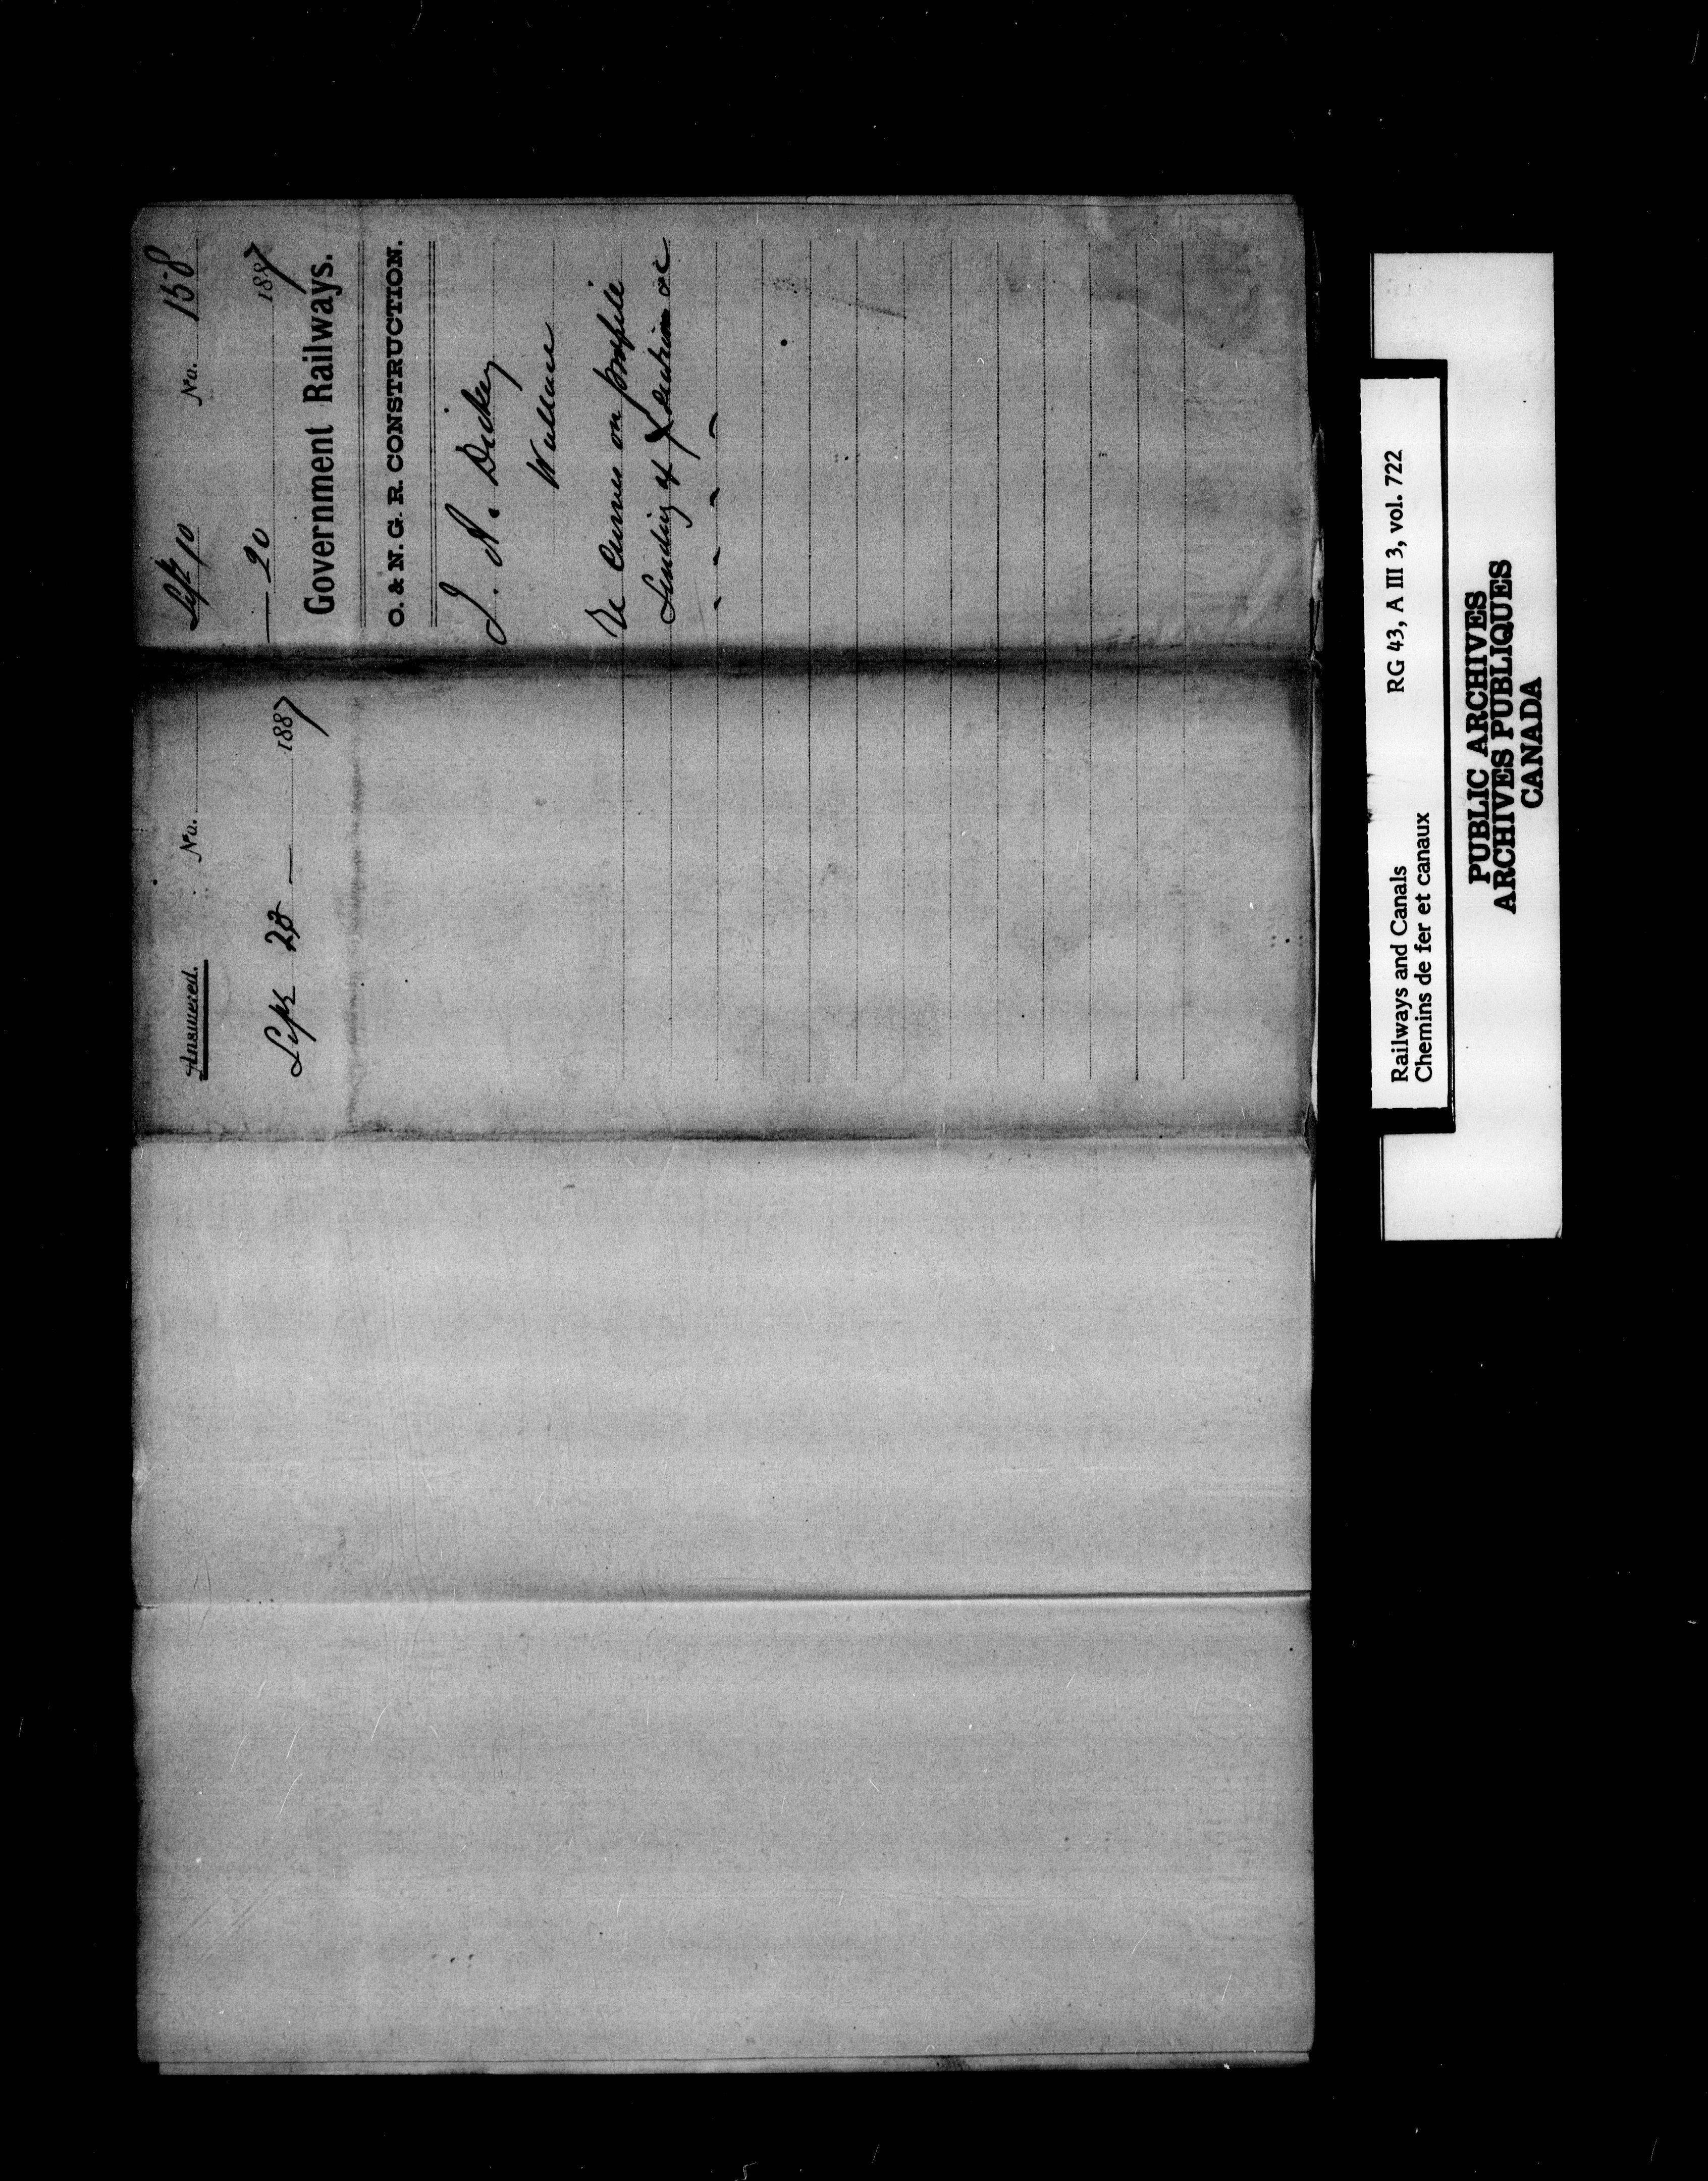 Sept 10 No. 158
— 20 1887
Government Railways.
O. & N. G. R. CONSTRUCTION.
J. A. Dickey
Wallace
Re Curves on profile
Sending of &c
Answered. No.
Sept 20 — 1887
Railways and Canals RG 43, A III 3, vol. 722
Chemins de fer et canaux
PUBLIC ARCHIVES
ARCHIVES PUBLIQUES
CANADA